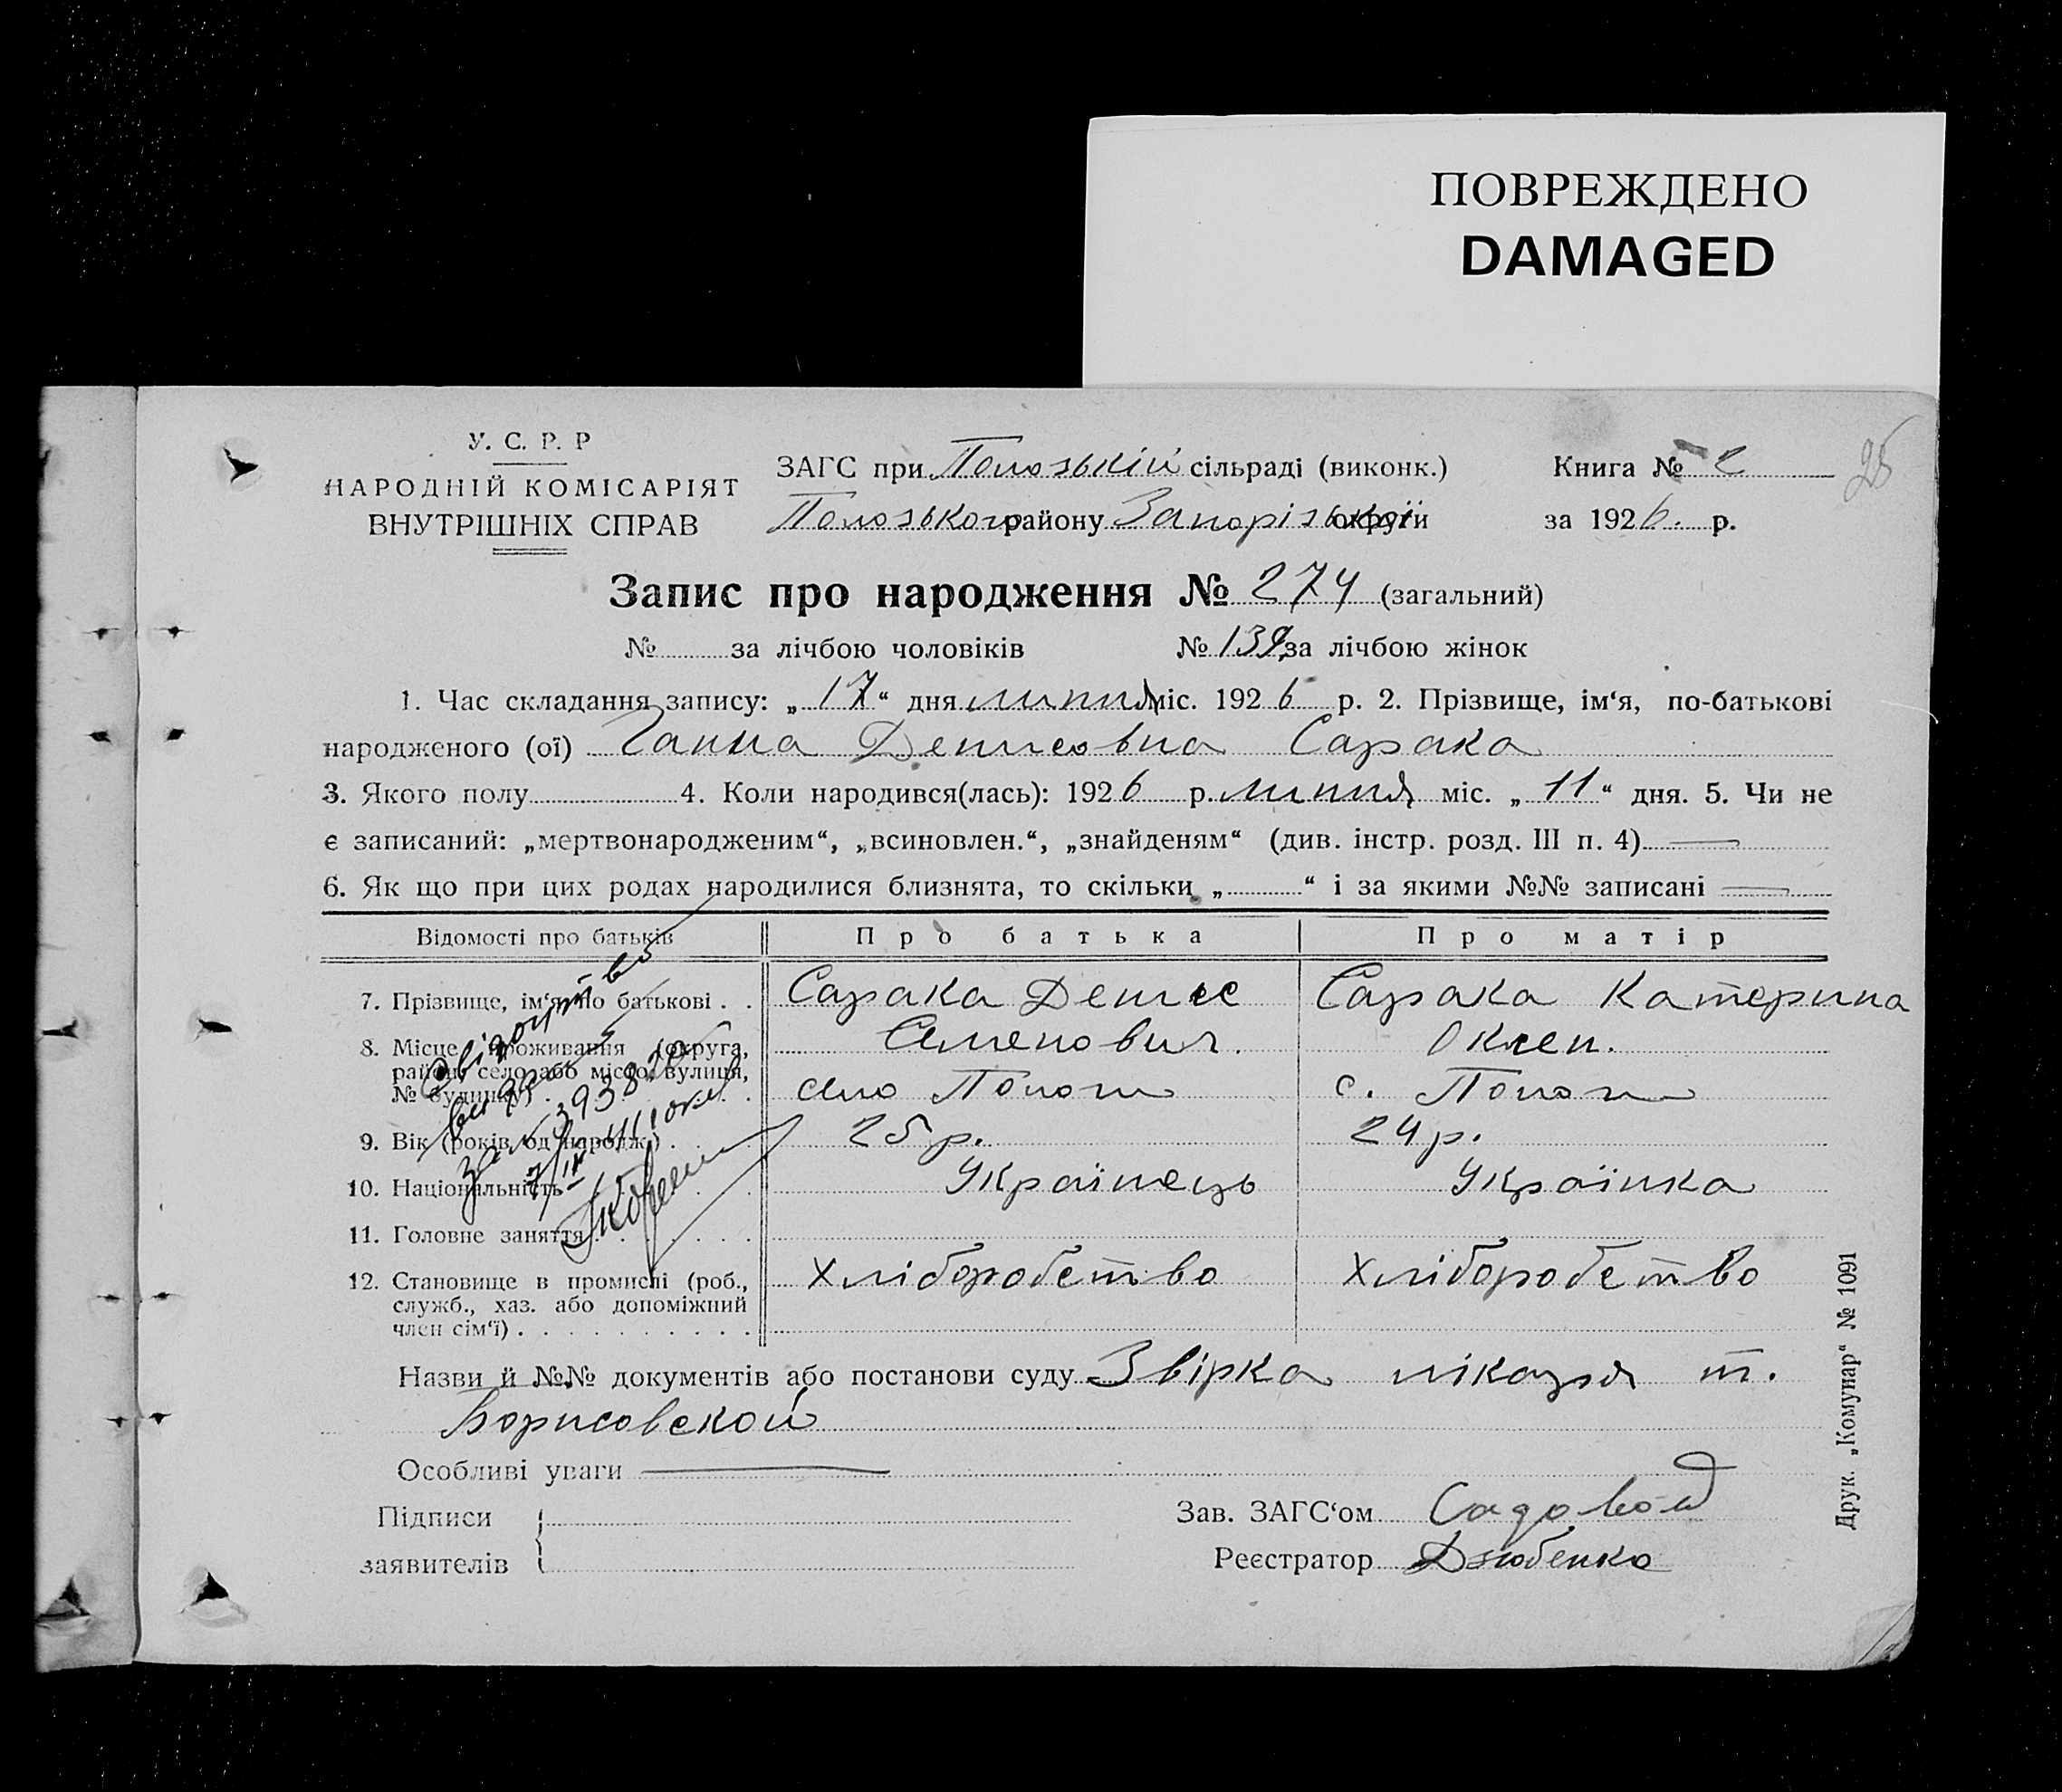 ПОВРЕЖДЕНО
DAMAGED
У. С. Р. Р
НАРОДНІЙ КОМІСАРІЯТ
ВНУТРІШНІХ СПРАВ
ЗАГС при Полозькій сільраді (виконк.)
Полозького району Запорізької округи
Книга № 2
за 1926 р.
25
Запис про народження № 274 (загальний)
№ за лічбою чоловіків № 139 за лічбою жінок
1. Час складання запису: „17“ дня липня міс. 1926 р. 2. Прізвище, ім‘я, по-батькові
народженого (ої) Ганна Денисовна Сазрака
3. Якого полу 4. Коли народився(лась): 1926 р. липня міс. „11“ дня. 5. Чи не
є записаний: „мертвонародженим“, „всиновлен.“, „знайденям“ (див. інстр. розд. III п. 4) —
6. Як що при цих родах народилися близнята, то скільки „ “ і за якими №№ записані —
Відомості про батьків Про батька Про матір
7. Прізвище, ім‘я по батькові . . Денис Семенович. Катерина
8. Місце проживання (округа, район, село або місто, вулиця, № будинку) село Пологи с. Пологи
9. Вік (років од народж.) . 25 р. 24 р.
10. Національність Українець Українка
11. Головне заняття
12. Становище в промислі (роб., служб., хаз. або допоміжний член сім‘ї) . Хліборобство Хліборобство
Свідоцтво
видано
за № 393820
Назви й №№ документів або постанови суду Звірка лікаря т.
Борисовской
Особливі уваги —
Підписи
заявителів
Зав. ЗАГС‘ом Садовой
Реєстратор Дзюбенко
Друк. „Комунар“ № 1091